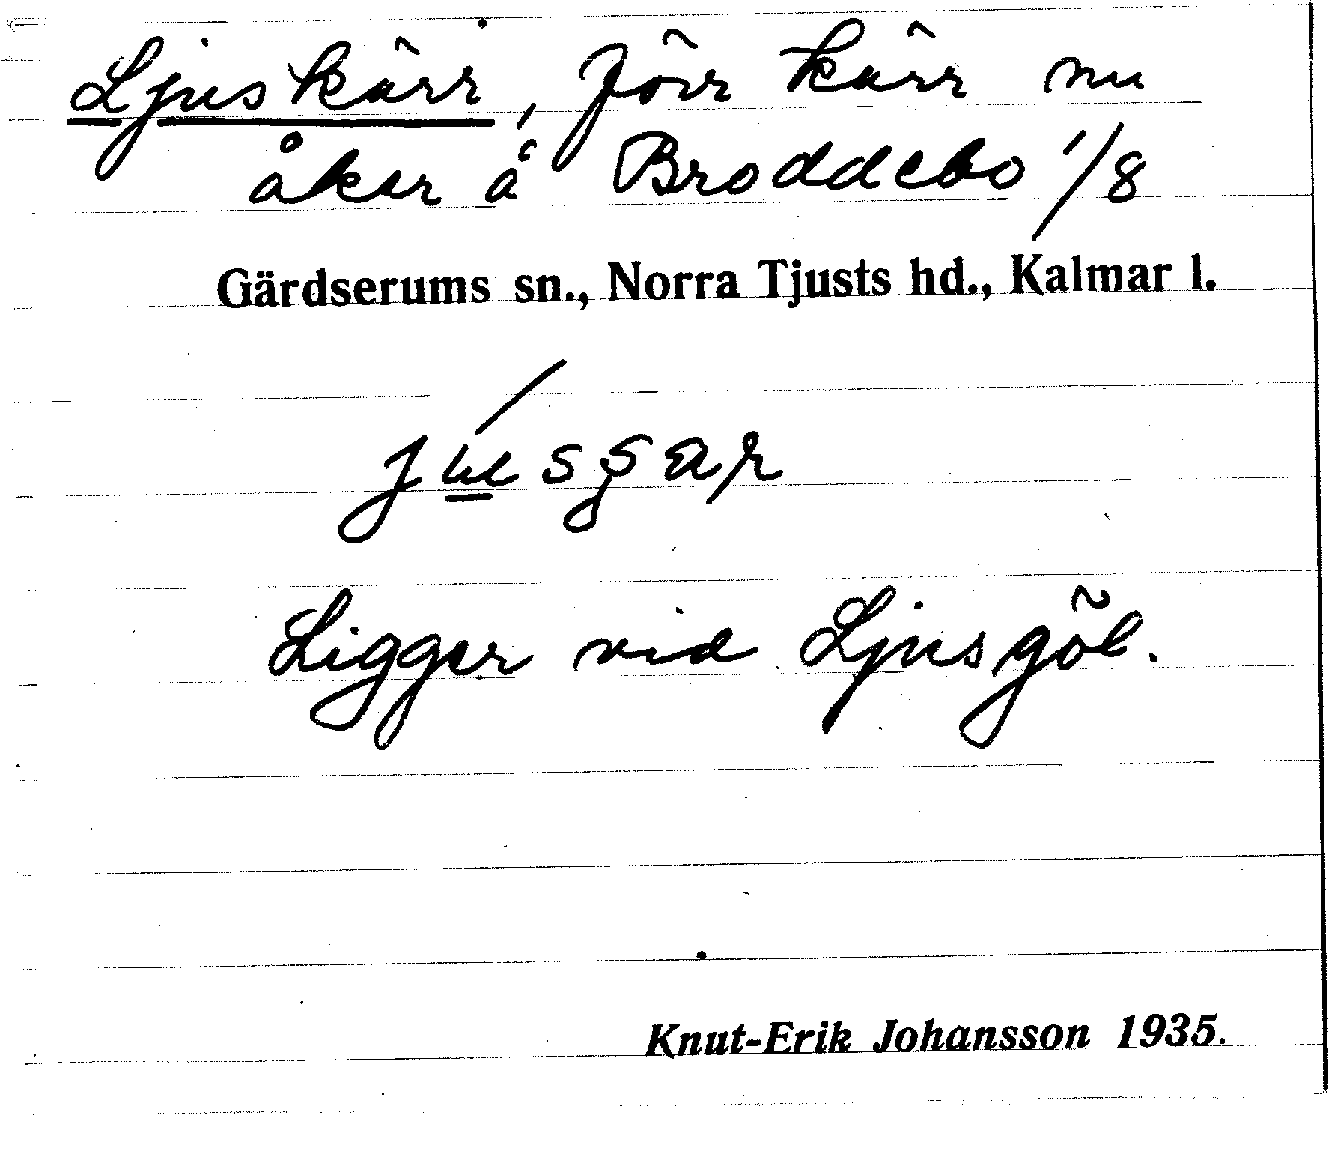 Ljuskärr, förr kärr nu
åker å Broddebo 1/8
Gärdserums sn., Norra Tjusts hd., Kalmar l.
Ligger vid Ljusgöl.
Knut-Erik Johansson 1935.